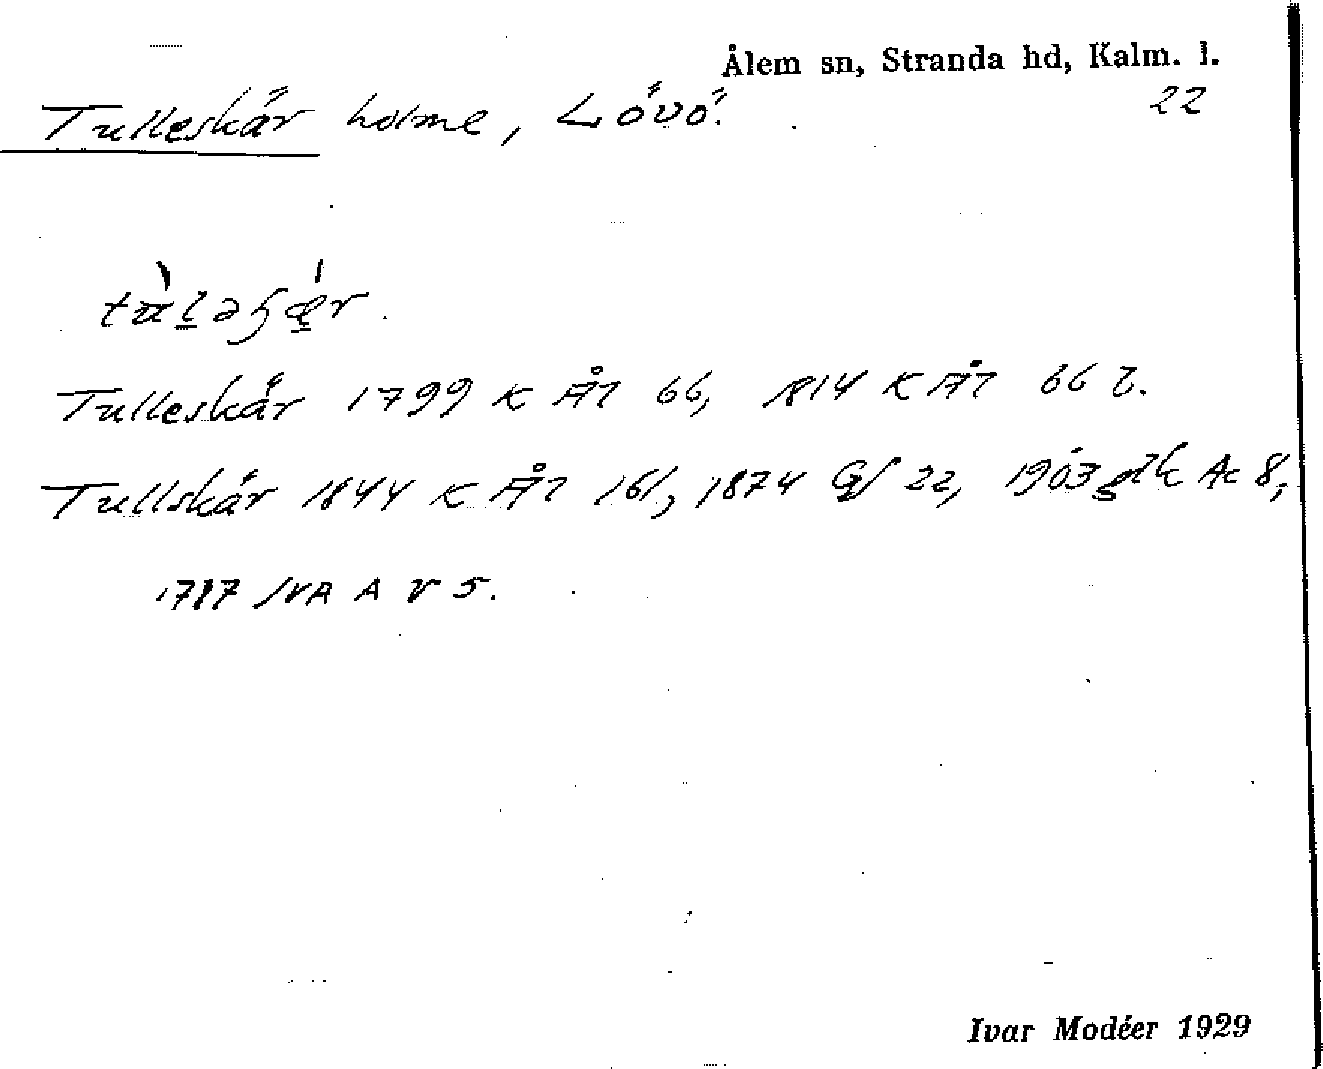 Ålem sn, Stranda hd, Kalm. l.
Tulleskär holme, Lövö. 22
Tulleskär 1799 K Ål 66, 1814 K Ål 66 b.
Tullskär 1844 K Ål 161, 1874 GS 22, 1903 Ac 8,
1787 A V 5.
Ivar Modéer 1929